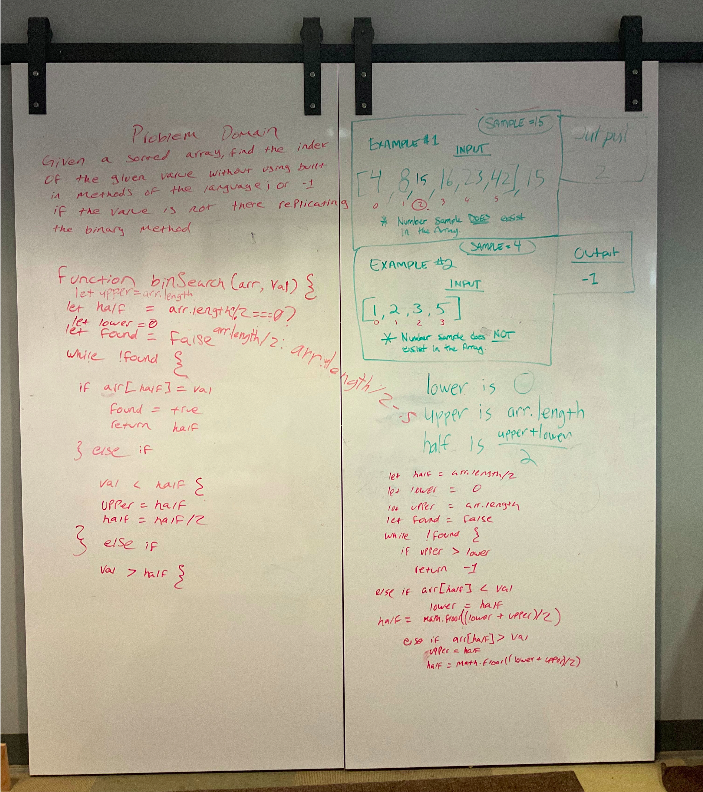 Problem Domain
Given a sorted array, find the index
of the given value without using built
in methods of the language; or -1
if the value is not there replicating
the binary method
function binSearch (arr, val) {
let upper = arr.length
let half = arr.length % 2 === 0 ?
arr.length/2 : arr.length/2 - .5
let lower = 0
let found = False
while !found {
if arr[half] = val
found = true
return half
} else if
val < half {
upper = half
half = half/2
} else if
val > half {
SAMPLE = 15
EXAMPLE #1
INPUT
[4, 8, 15, 16, 23, 42], 15
0 1 2 3 4 5
* Number Sample DOES exist
in the Array.
Output
2
SAMPLE = 4
EXAMPLE #2
INPUT
[1, 2, 3, 5]
0 1 2 3
* Number sample does NOT
exist in the Array.
Output
-1
lower is 0
upper is arr.length
half is upper+lower
2
let half = arr.length/2
let lower = 0
let upper = arr.length
let found = False
while !found {
if upper > lower
return -1
else if arr[half] < val
lower = half
half = math.floor((lower + upper)/2)
else if arr[half] > val
upper = half
half = math.floor((lower + upper)/2)